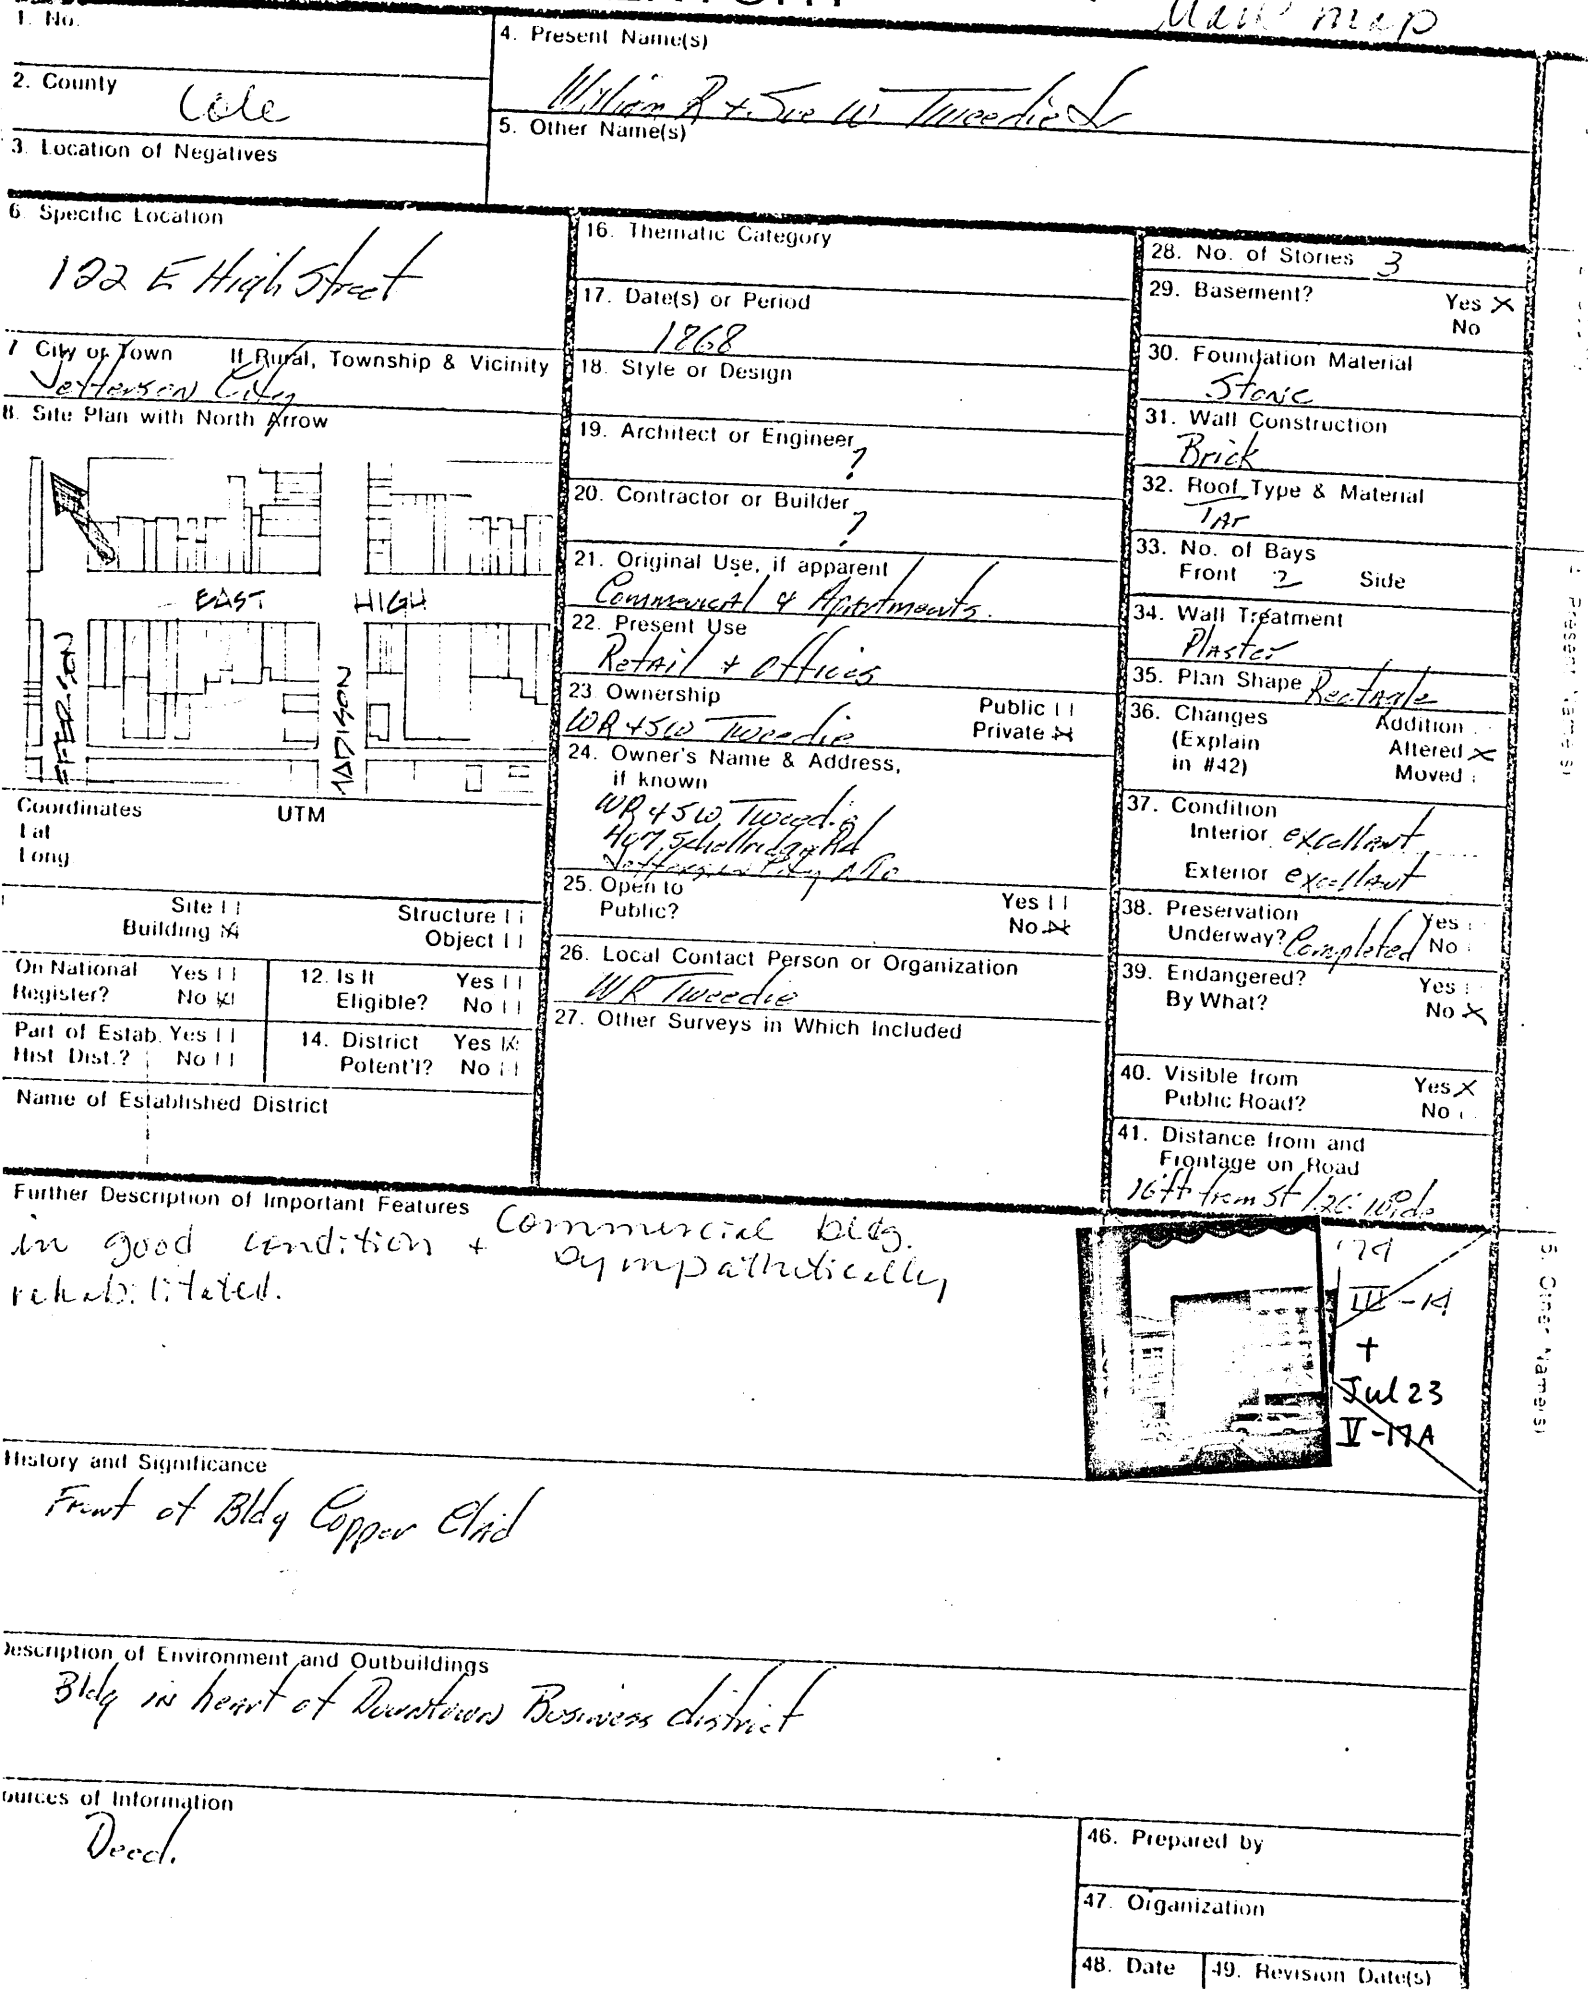 Mark map
1. No.
2. County
Cole
3. Location of Negatives
4. Present Name(s)
William R + Sue W Tweedie Jr
5. Other Name(s)
6. Specific Location
122 E High Street
7 City or Town If Rural, Township & Vicinity
Jefferson City
8. Site Plan with North Arrow
EAST HIGH
MADISON
Coordinates UTM
Lat
Long
Site | |
Building
Structure | |
Object | |
On National Register? Yes | | No
12. Is It Eligible? Yes | | No | |
Part of Estab. Hist. Dist.? Yes | | No | |
14. District Potent'l? Yes No
Name of Established District
16. Thematic Category
17. Date(s) or Period
1868
18. Style or Design
19. Architect or Engineer
?
20. Contractor or Builder
?
21. Original Use, if apparent
Commerical & Apartments.
22. Present Use
Retail + offices
23. Ownership Public | |
WR + SW Tweedie Private
24. Owner's Name & Address,
if known
WR & SW Tweedie
Jefferson City Mo
25. Open to Public? Yes | |
No
26. Local Contact Person or Organization
WR Tweedie
27. Other Surveys in Which Included
28. No. of Stories 3
29. Basement? Yes X
No
30. Foundation Material
Stone
31. Wall Construction
Brick
32. Roof Type & Material
TAr
33. No. of Bays
Front 2 Side
34. Wall Treatment
Plaster
35. Plan Shape Rectangle
36. Changes Addition
(Explain Altered X
in #42) Moved
37. Condition
Interior excellant
Exterior excellant
38. Preservation Yes
Underway? Completed No
39. Endangered? Yes
By What? No X
40. Visible from Yes X
Public Road? No
41. Distance from and
Frontage on Road
16 ft from St / 26' wide
Further Description of Important Features
Commercial bldg.
in good condition + sympathetically
rehabilitated.
+
Jul 23
V-17A
History and Significance
Front of Bldg Copper Clad
Description of Environment and Outbuildings
Bldg in heart of Downtown Business district
ources of Information
Deed.
46. Prepared by
47. Organization
48. Date 49. Revision Date(s)
Present Name(s)
5. Other Name(s)